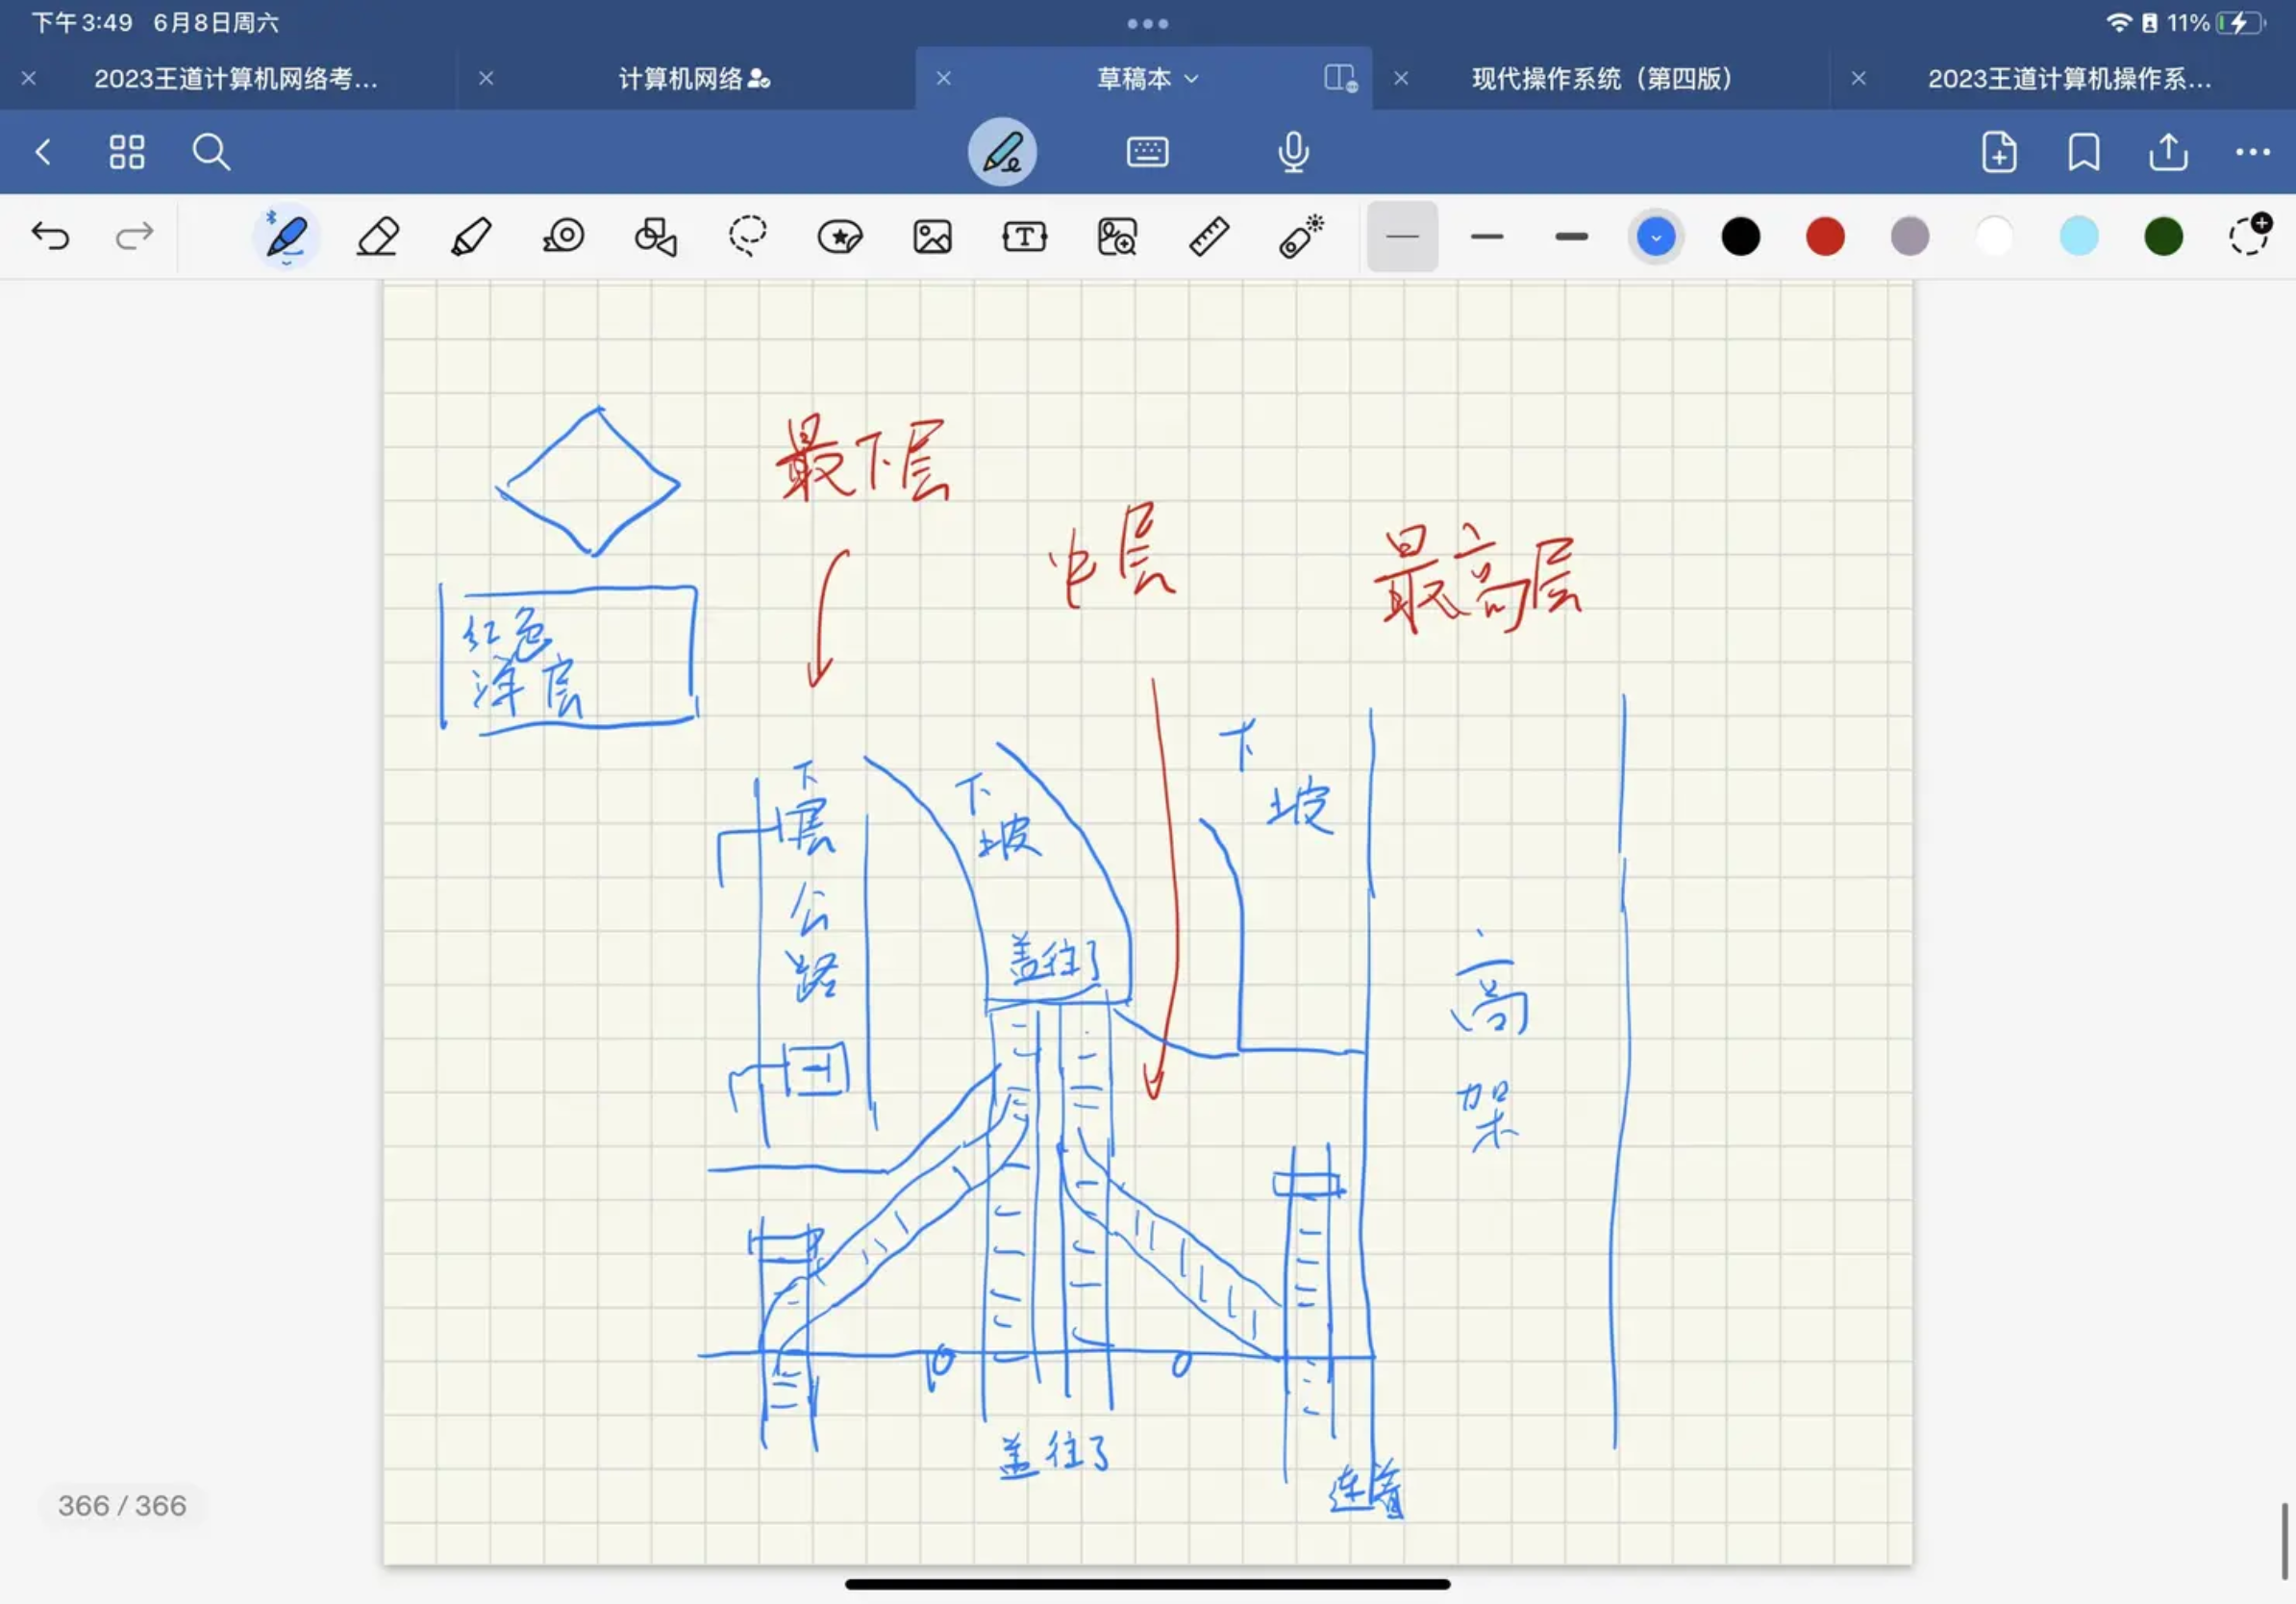 下午3:49 6月8日周六
11%
2023王道计算机网络考...
计算机网络
草稿本
现代操作系统（第四版）
2023王道计算机操作系...
最下层
中层
最高层
红色
涂层
下层公路
下坡
下坡
盖住了
高架
盖住了
连着
366 / 366